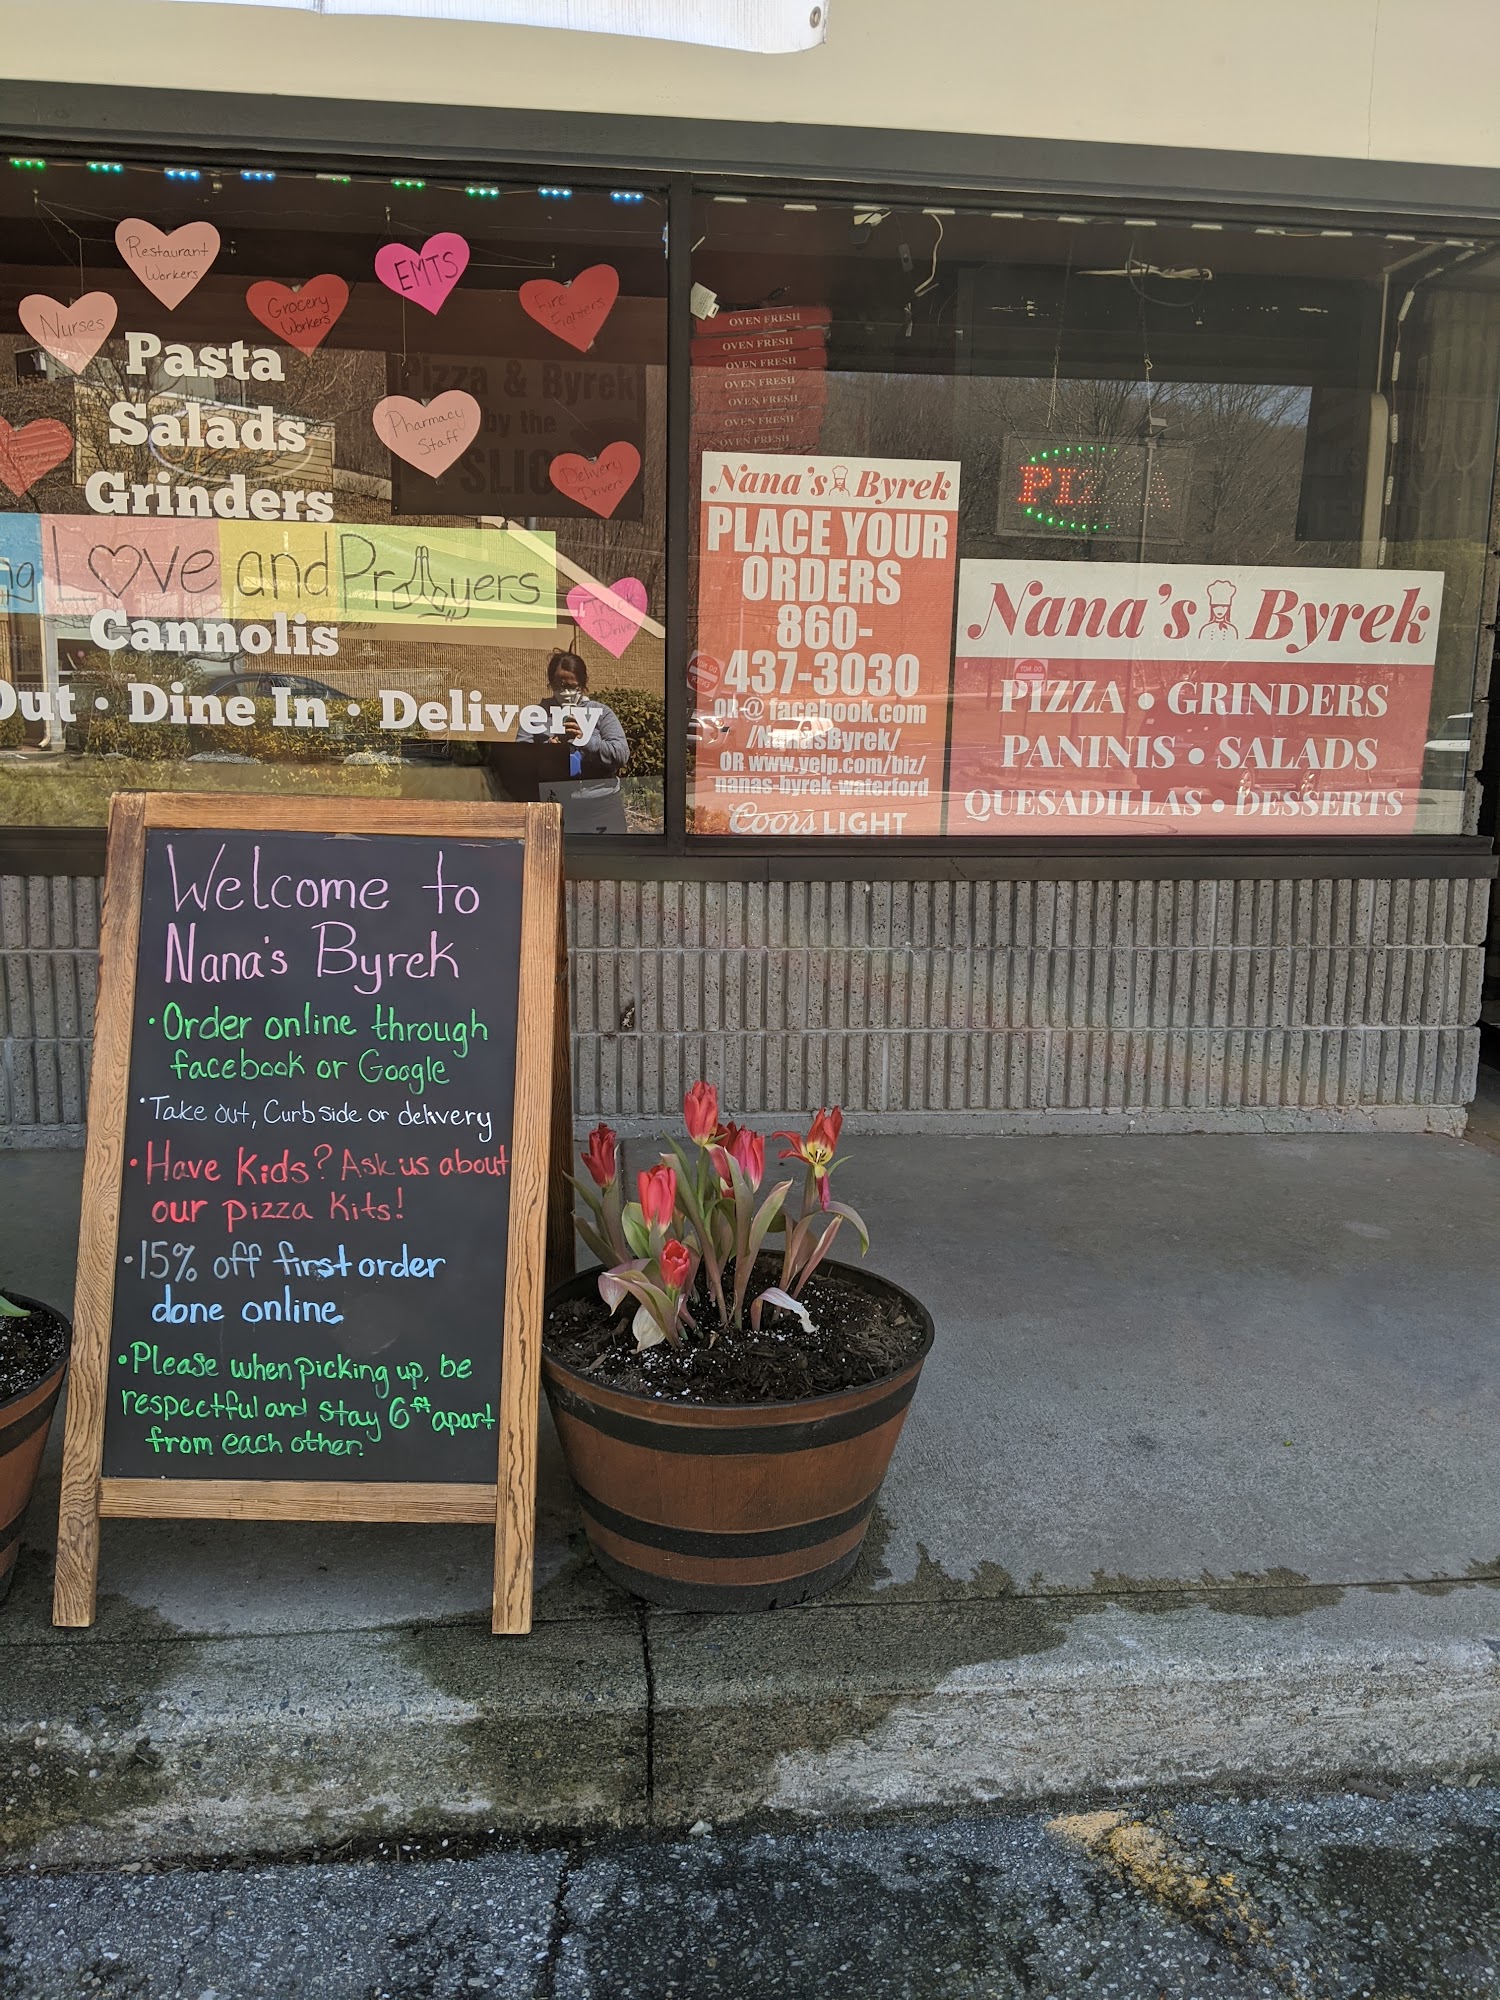 Restaurant
Workers
EMTS
Nurses
Grocery
Workers
Fire
Fighters
Pharmacy
Staff
Delivery
Drivers
Truck
Drivers
Pasta
Salads
Grinders
Love and Prayers
Cannolis
Out · Dine In · Delivery
Pizza & Byrek
by the
SLIC
OVEN FRESH
OVEN FRESH
OVEN FRESH
OVEN FRESH
OVEN FRESH
OVEN FRESH
OVEN FRESH
PIZZA
Nana's Byrek
PLACE YOUR
ORDERS
860-
437-3030
OR @ facebook.com
/NanasByrek/
OR www.yelp.com/biz/
nanas-byrek-waterford
Coors LIGHT
Nana's Byrek
PIZZA • GRINDERS
PANINIS • SALADS
QUESADILLAS • DESSERTS
Welcome to
Nana's Byrek
• Order online through
facebook or Google
• Take out, Curbside or delivery
• Have Kids? Ask us about
our pizza Kits!
• 15% off first order
done online
• Please when picking up, be
respectful and stay 6ft apart
from each other.